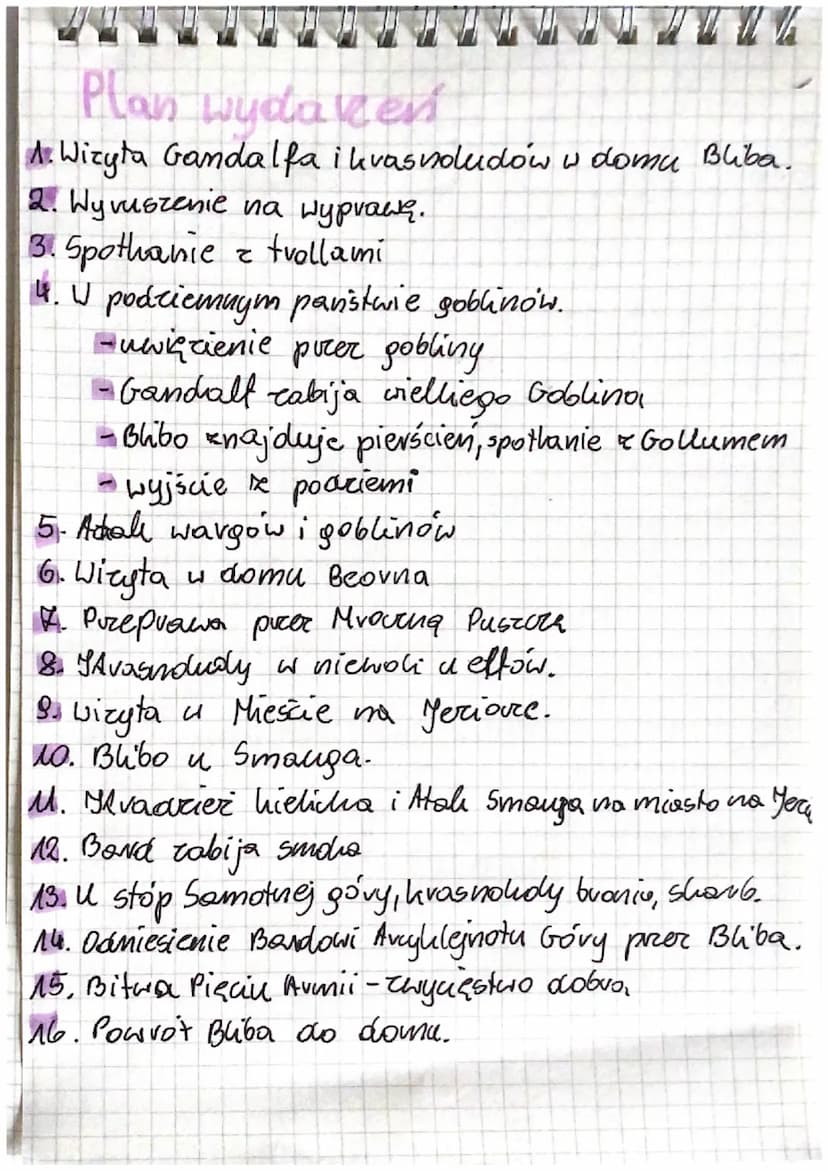 Plan wydarzeń
1. Wizyta Gandalfa i krasnoludów w domu Bliba.
2. Wyruszenie na wyprawę.
3. Spotkanie z trollami
4. W podziemnym państwie goblinów.
- uwięzienie przez gobliny
- Gandalf zabija wielkiego Goblina
- Blibo znajduje pierścień, spotkanie z Gollumem
- wyjście z podziemi
5. Atak wargów i goblinów
6. Wizyta w domu Beorna
7. Przeprawa przez Mroczną Puszczę
8. Krasnoludy w niewoli u elfów.
9. Wizyta w Mieście na Jeziorze.
10. Blibo u Smauga.
11. Kradzież kielicha i Atak Smauga na miasto na Jezi
12. Bard zabija smoka
13. U stóp Samotnej góry, krasnoludy bronią, skarb.
14. Odniesienie Bardowi Arcyklejnotu Góry przez Bliba.
15. Bitwa Pięciu Armii - zwycięstwo dobra
16. Powrót Bliba do domu.